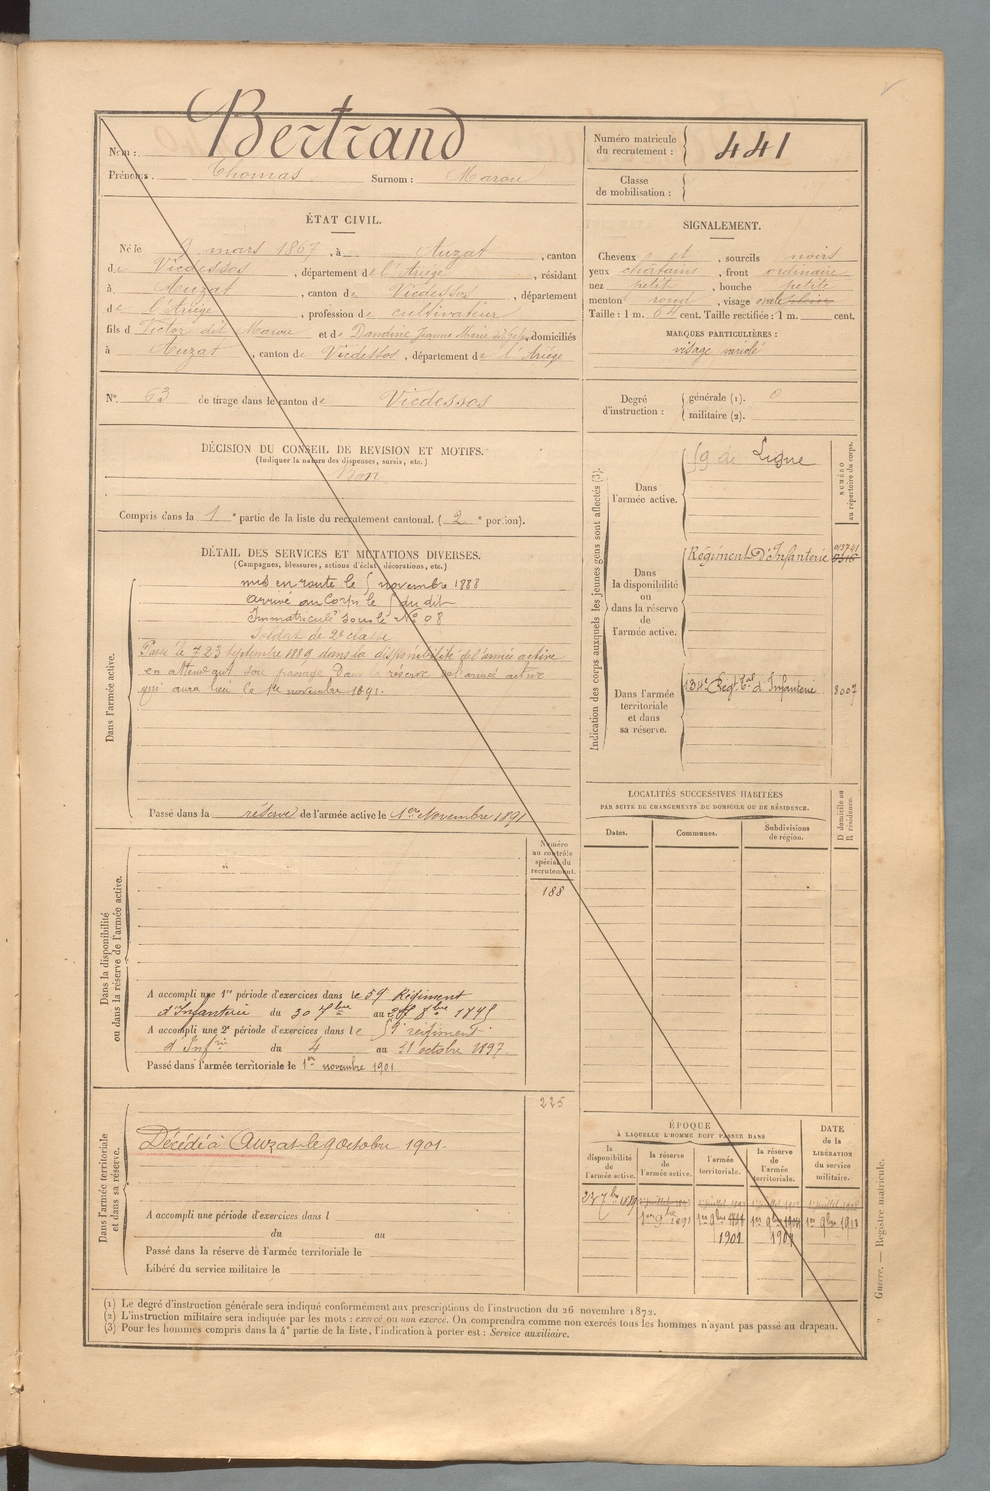 Nom : Bertrand
Prénoms. Thomas Surnom : Marou
Numéro matricule
du recrutement : 441
Classe
de mobilisation :
ÉTAT CIVIL.
Né le 9 mars 1867, à Auzat, canton
de Vicdessos, département de l'Ariège, résidant
à Auzat, canton de Vicdessos, département
de l'Ariège, profession de cultivateur
fils d Victor dit Marou et de Dandine Jeanne Marie, domiciliés
à Auzat, canton de Vicdessos, département de l'Ariège
N° 63 de tirage dans le canton de Vicdessos
SIGNALEMENT.
Cheveux et, sourcils noirs
yeux châtains, front ordinaire
nez petit, bouche petite
menton rond, visage ovale
Taille : 1 m. 64 cent. Taille rectifiée : 1 m. cent.
MARQUES PARTICULIÈRES :
visage variolé
Degré
d'instruction :
générale (1). 0
militaire (2).
DÉCISION DU CONSEIL DE REVISION ET MOTIFS.
(Indiquer la nature des dispenses, sursis, etc.)
Bon
Compris dans la 1e partie de la liste du recrutement cantonal. (2e portion).
DÉTAIL DES SERVICES ET MUTATIONS DIVERSES.
(Campagnes, blessures, actions d'éclat, décorations, etc.)
Dans l'armée active.
mis en route le 5 novembre 1888
arrivé au Corps le 5 du dit
Immatriculé sous le N°
Soldat de 2e classe
Passé le 23 septembre 1889 dans la disponibilité de l'armée active
en attendant son passage dans la réserve de l'armée active
qui aura lieu le 1er novembre 1891.
Passé dans la réserve de l'armée active le 1er Novembre 1891
Indication des corps auxquels les jeunes gens sont affectés (3).
NUMÉRO
au répertoire du corps.
Dans
l'armée active.
59 de Ligne
Dans
la disponibilité
ou
dans la réserve
de
l'armée active.
Régiment D'Infanterie
Dans l'armée
territoriale
et dans
sa réserve.
134e Regt tal d'Infanterie 8007
LOCALITÉS SUCCESSIVES HABITÉES
PAR SUITE DE CHANGEMENTS DE DOMICILE OU DE RÉSIDENCE.
Dates.
Communes.
Subdivisions
de région.
D domicile ou
R résidence.
Dans la disponibilité
ou dans la réserve de l'armée active.
Numéro
au contrôle
spécial du
recrutement.
188
A accompli une 1re période d'exercices dans le 59e Régiment
d'Infanterie du 30 7bre au 8bre 1895
A accompli une 2e période d'exercices dans le 59e régiment
d'Infrie du 4 au 31 octobre 1897.
Passé dans l'armée territoriale le 1er novembre 1901
Dans l'armée territoriale
et dans sa réserve.
225
Décédé à Auzat le 9 octobre 1901.
A accompli une période d'exercices dans l
du au
Passé dans la réserve de l'armée territoriale le
Libéré du service militaire le
ÉPOQUE
À LAQUELLE L'HOMME DOIT PASSER DANS
la
disponibilité
de
l'armée active.
la
réserve
de
l'armée active.
l'armée
territoriale.
la réserve
de
l'armée
territoriale.
DATE
de la
LIBÉRATION
du service
militaire.
23 7bre 1889
1er 9bre 1891
1er 9bre 1901
1er 9bre 1907
1er 9bre 1913
(1) Le degré d'instruction générale sera indiqué conformément aux prescriptions de l'instruction du 26 novembre 1872.
(2) L'instruction militaire sera indiquée par les mots : exercé ou non exercé. On comprendra comme non exercés tous les hommes n'ayant pas passé au drapeau.
(3) Pour les hommes compris dans la 4e partie de la liste, l'indication à porter est : Service auxiliaire.
Guerre. — Registre matricule.